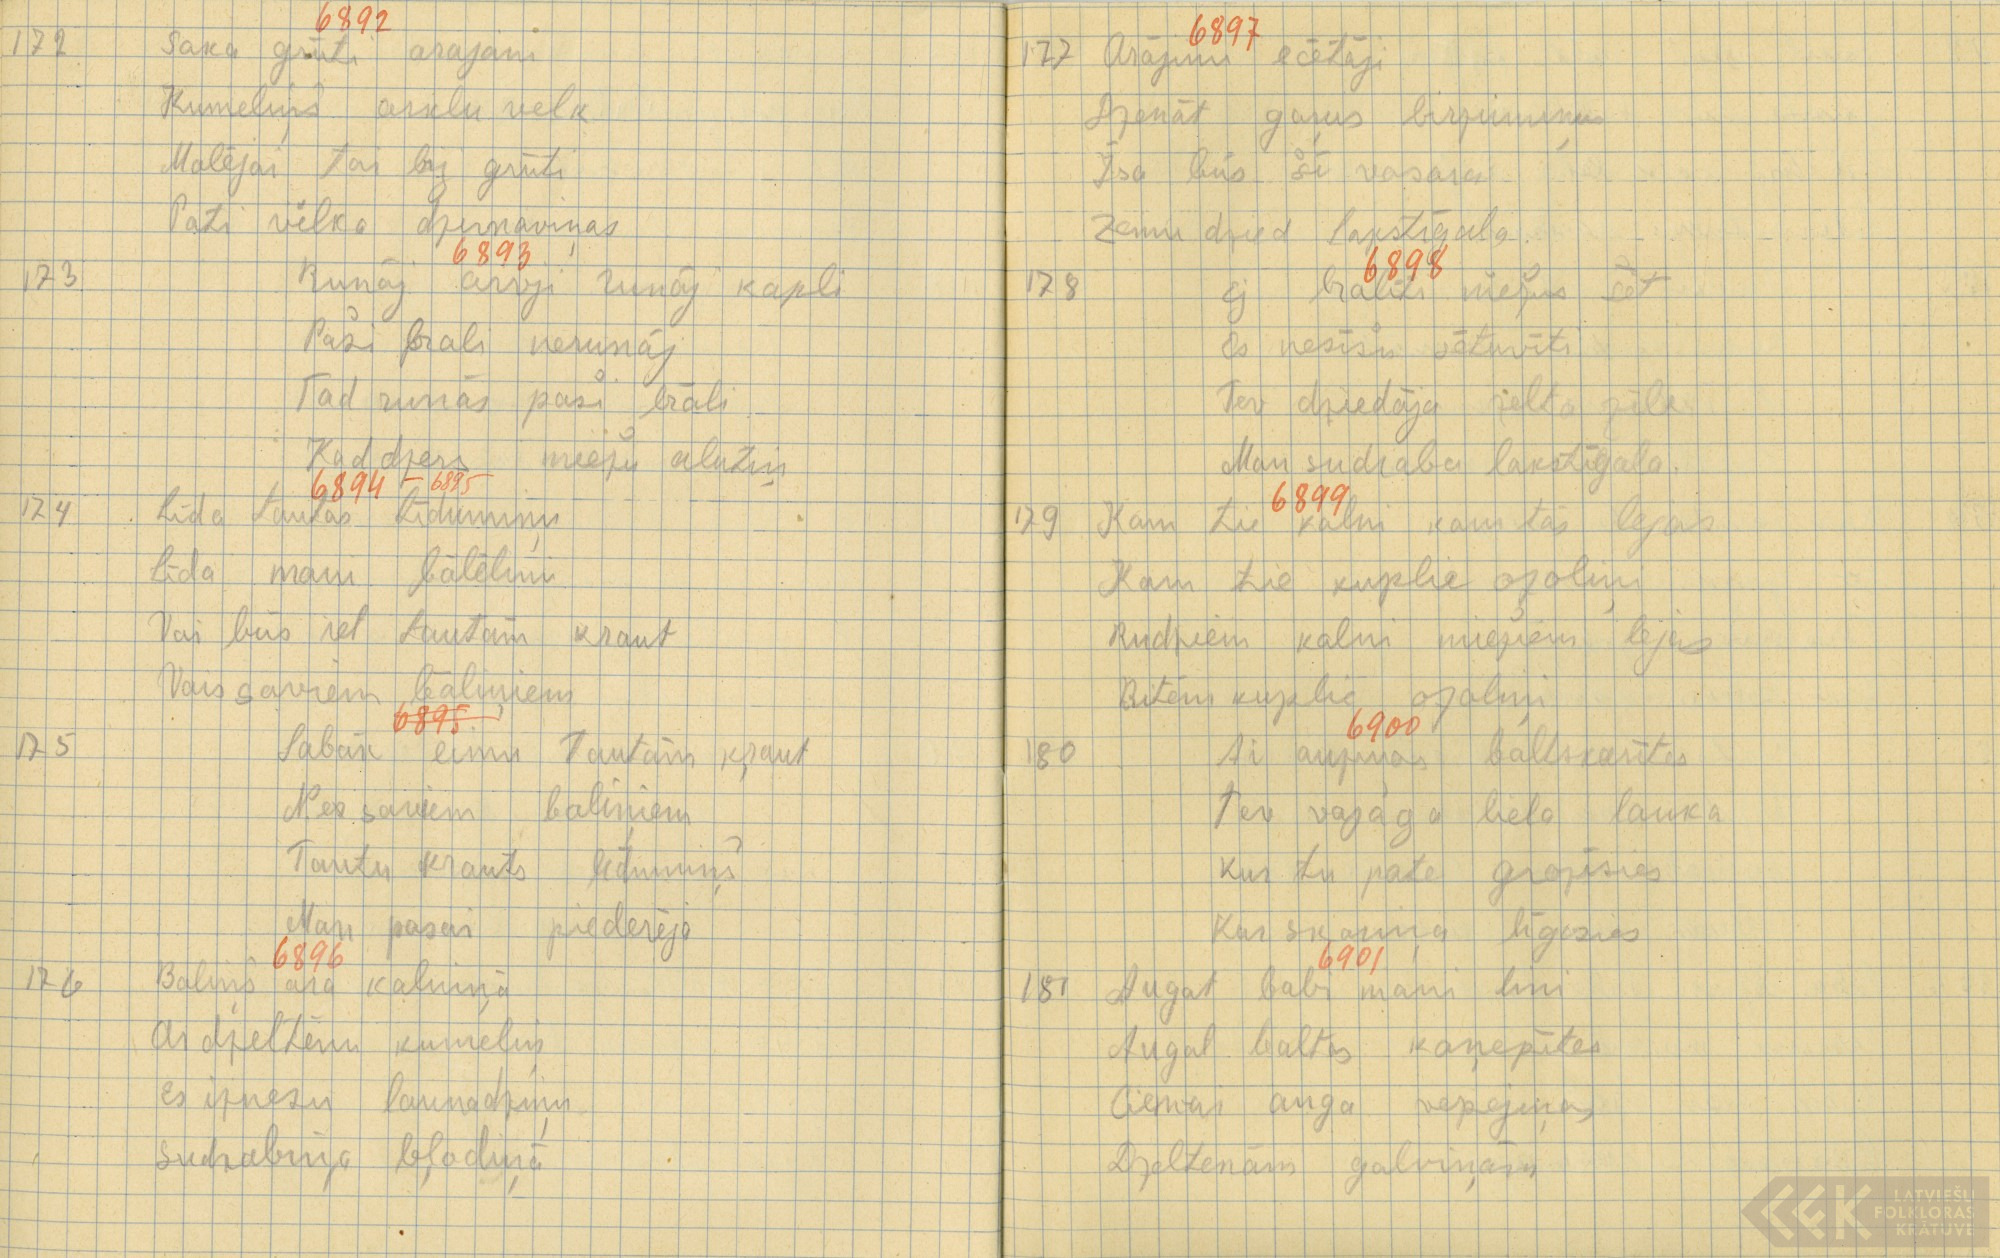 6892
172 Saka grūti arajami
Kumeliņš arklu velk
Malējai tai bij grūti
Pati vilka dzirnaviņas
6893
173 Runāj arāji runāj kapli
Paši brali nerunāj
Tad runās paši brāli
Kad dzers miežu alutiņ
6894 - 6895
174 Līda tautas līdumiņu
Līda mani bālēliņi
Vai būs iet tautām kraut
Vais saviem bāliņiem
6895
175 Labāk eimu Tautām kraut
Nex saviem baliņiem
Tautu krauts līdumiņš
Man pašai piederēja
6896
176 Baliņš ara kalniņā
Ar dzeltēnu kumeliņ
Es iznesu launadziņu
Sudrabiņa bļodiņā
6897
177 Arājiņi ecētāji
Dzenāt garus birzumiņus
Īsa būs šī vasara
Zemu dzied lapstīgala.
6898
178 Ej bralīti miežus sēt
Es nesīšu sētuvīti
Tev dziedāja zelta zīle
Man sudraba lakstīgala.
6899
179 Kam tie kalni kam tās lejas
Kam tie kuplie ozoliņi
Rudziem kalni miežiem lejas
Bitēm kuplie ozoliņi
6900
180 Ai auziņas baltskarītes
Tev vajaga liela lauka
Kur tu pate grozīsies
Kur skariņa līgosies
6901
181 Augat balti mani lini
Augat baltas kaņepītes
Ciemai auga vepejiņas
Dzeltenām galviņām
LATVIEŠU
FOLKLORAS
KRĀTUVE